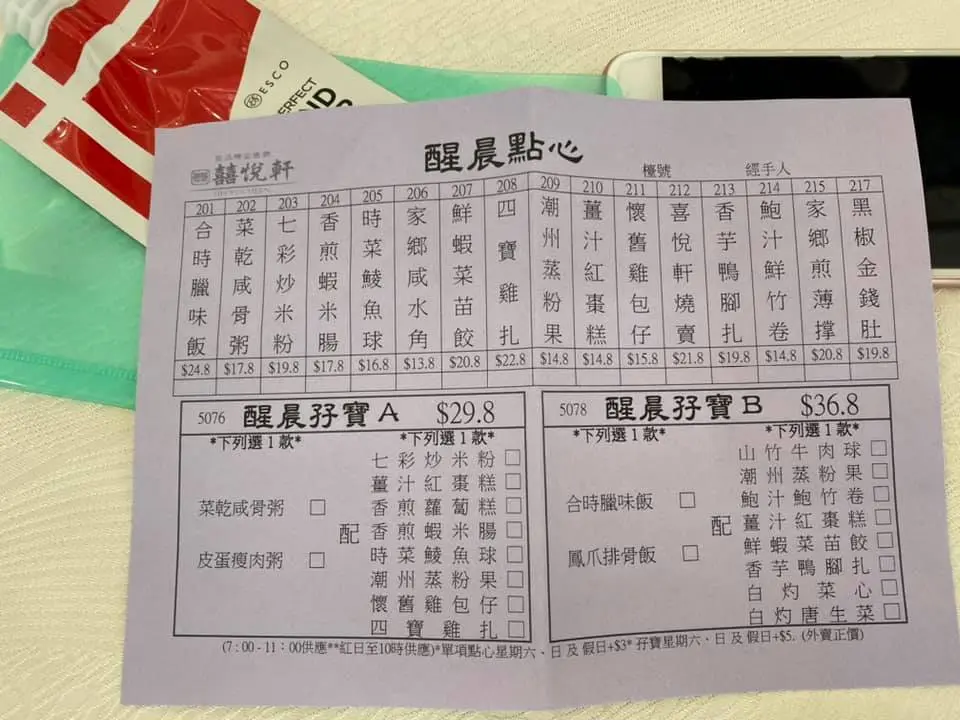 ESCO
PERFECT
醒晨點心
囍悅軒
檯號
經手人
201 202 203 204 205 206 207 208 209 210 211 212 213 214 215 217
合時臘味飯
菜乾咸骨粥
七彩炒米粉
香煎蝦米腸
時菜鯪魚球
家鄉咸水角
鮮蝦菜苗餃
四寶雞扎
潮州蒸粉果
薑汁紅棗糕
懷舊雞包仔
喜悅軒燒賣
香芋鴨腳扎
鮑汁鮮竹卷
家鄉煎薄撑
黑椒金錢肚
$24.8 $17.8 $19.8 $17.8 $16.8 $13.8 $20.8 $22.8 $14.8 $14.8 $15.8 $21.8 $19.8 $14.8 $20.8 $19.8
5076 醒晨孖寶A $29.8
*下列選1款* *下列選1款*
菜乾咸骨粥
皮蛋瘦肉粥
配
七彩炒米粉
薑汁紅棗糕
香煎蘿蔔糕
香煎蝦米腸
時菜鯪魚球
潮州蒸粉果
懷舊雞包仔
四寶雞扎
5078 醒晨孖寶B $36.8
*下列選1款* *下列選1款*
合時臘味飯
鳳爪排骨飯
配
山竹牛肉球
潮州蒸粉果
鮑汁鮑竹卷
薑汁紅棗糕
鮮蝦菜苗餃
香芋鴨腳扎
白灼菜心
白灼唐生菜
(7:00-11:00供應**紅日至10時供應)*單項點心星期六、日及假日+$3* 孖寶星期六、日及假日+$5. (外賣正價)